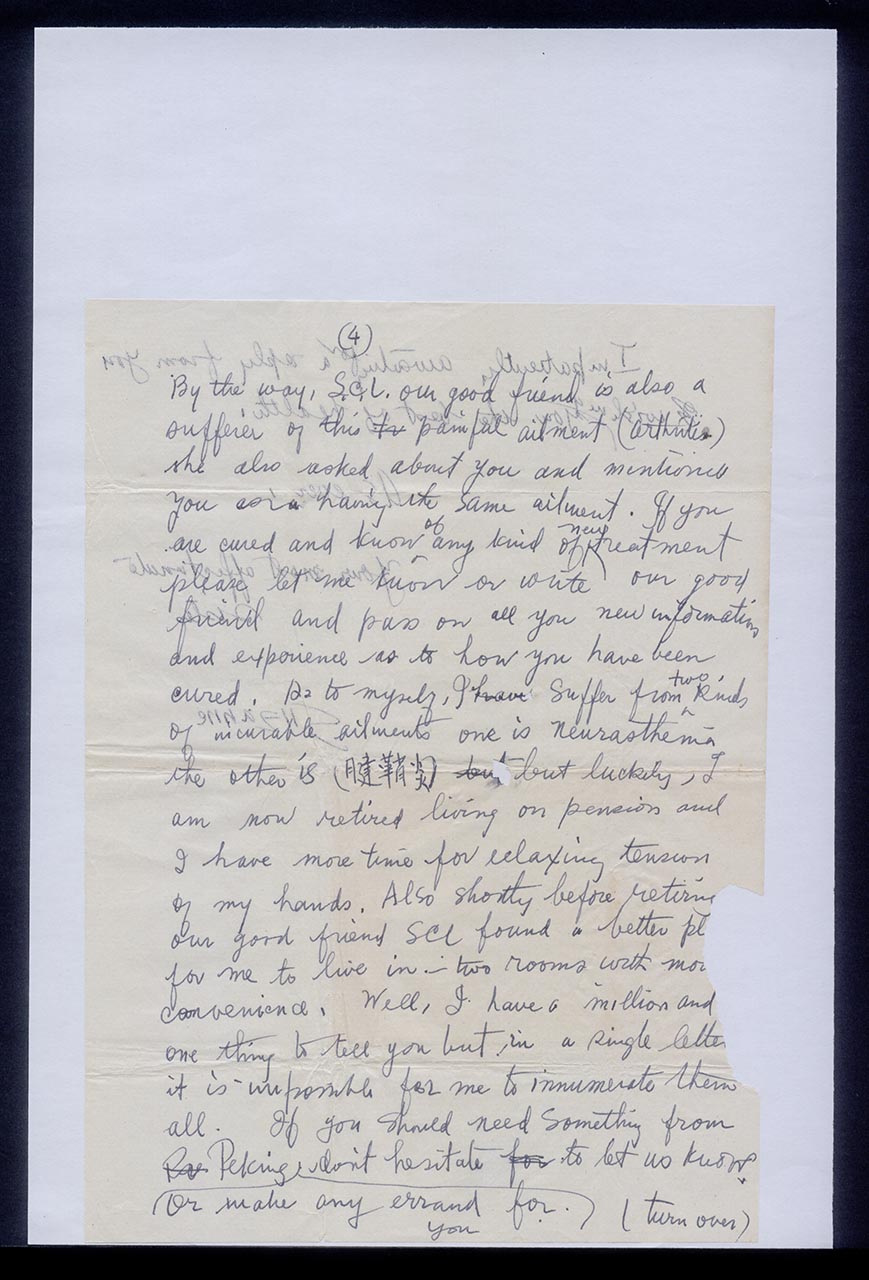 (4)
By the way, S.C.L. our good friend is also a
sufferer of this painful ailment (arthritis)
she also asked about you and mentioned
you as having the same ailment. If you
are cured and know of any kind of new treatment
please let me know or write our good
friend and pass on all you new information
and experience as to how you have been
cured. As to myself, I have suffer from two kinds
of incurable ailments one is neurasthenia
the other is (腱鞘炎) but but luckily, I
am now retired living on pension and
I have more time for relaxing tension
of my hands. Also shortly before retiring
our good friend SCL found a better pl
for me to live in - two rooms with mor
convenience. Well, I have a million and
one thing to tell you but in a single letter
it is impossible for me to innumerate them
all. If you should need something from
Peking don't hesitate for to let us know
(or make any errand for you.) (turn over)